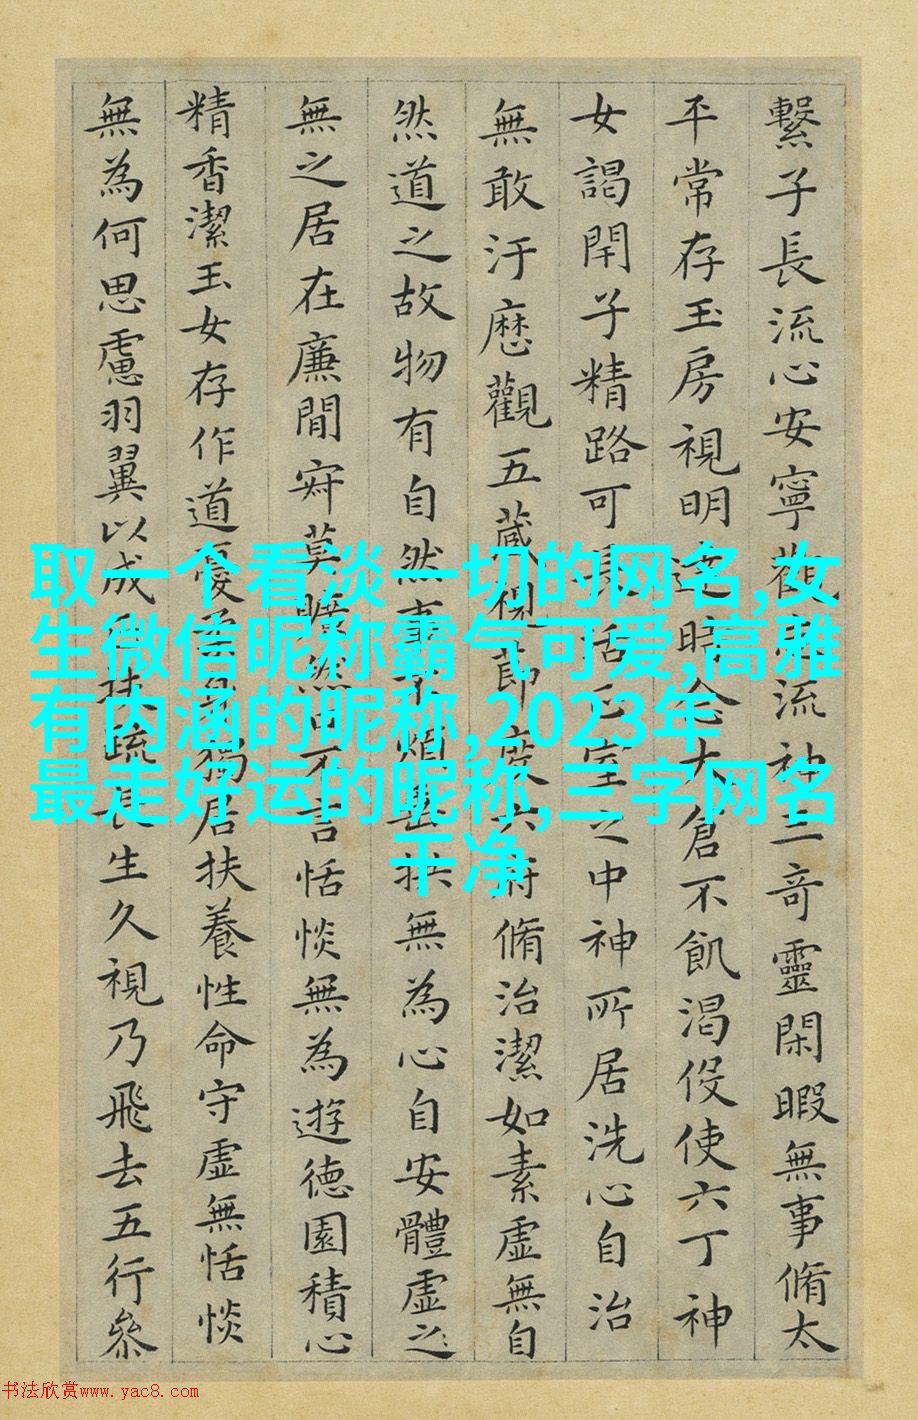 繫子長流心安寧觀志流神三奇靈閑暇無事脩太
平常存玉房視明達時念大倉不飢渴伇使六丁神
女謁閇子精路可長活正室之中神所居洗心自治
無敢汙歷觀五藏視節度六府脩治潔如素虛無自
然道之故物有自然事不煩垂拱無為心自安體虛之
無之居在廉間寂莫曠然口不言恬惔無為遊德園積心
精香潔玉女存作道憂柔身獨居扶養性命守虛無恬惔
無為何思慮羽翼以成正扶疏長生久視乃飛去五行參
取一个看淡一切的网名,女
生微信昵称霸气可爱,高雅
有内涵的昵称,2023年
最走好运的昵称,三字网名
干净
书法欣赏www.yac8.com